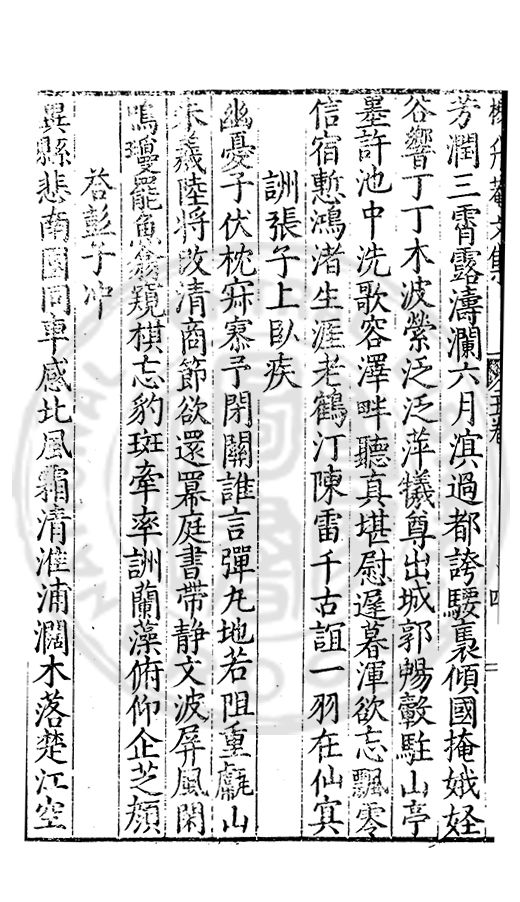 楊升菴文集 五卷 四
芳潤三霄露濤瀾六月滇過都誇騕褭傾國掩娥娙
谷響丁丁木波縈泛泛萍犧尊出城郭暢轂駐山亭
墨許池中洗歌容澤畔聽真堪慰遲暮渾欲忘飄零
信宿慙鴻渚生涯老鶴汀陳雷千古誼一羽在仙冥
訓張子上臥疾
幽憂子伏枕寂寥予閉關誰言彈丸地若阻重巘山
朱羲陸將改清商節欲還冪庭書帶靜文波屏風閑
鳴瓊罷魚翁窺棋忘豹斑牽率訓蘭藻俯仰企芝顏
荅彭子冲
異縣悲南國同車感北風霜清淮浦濶木落楚江空